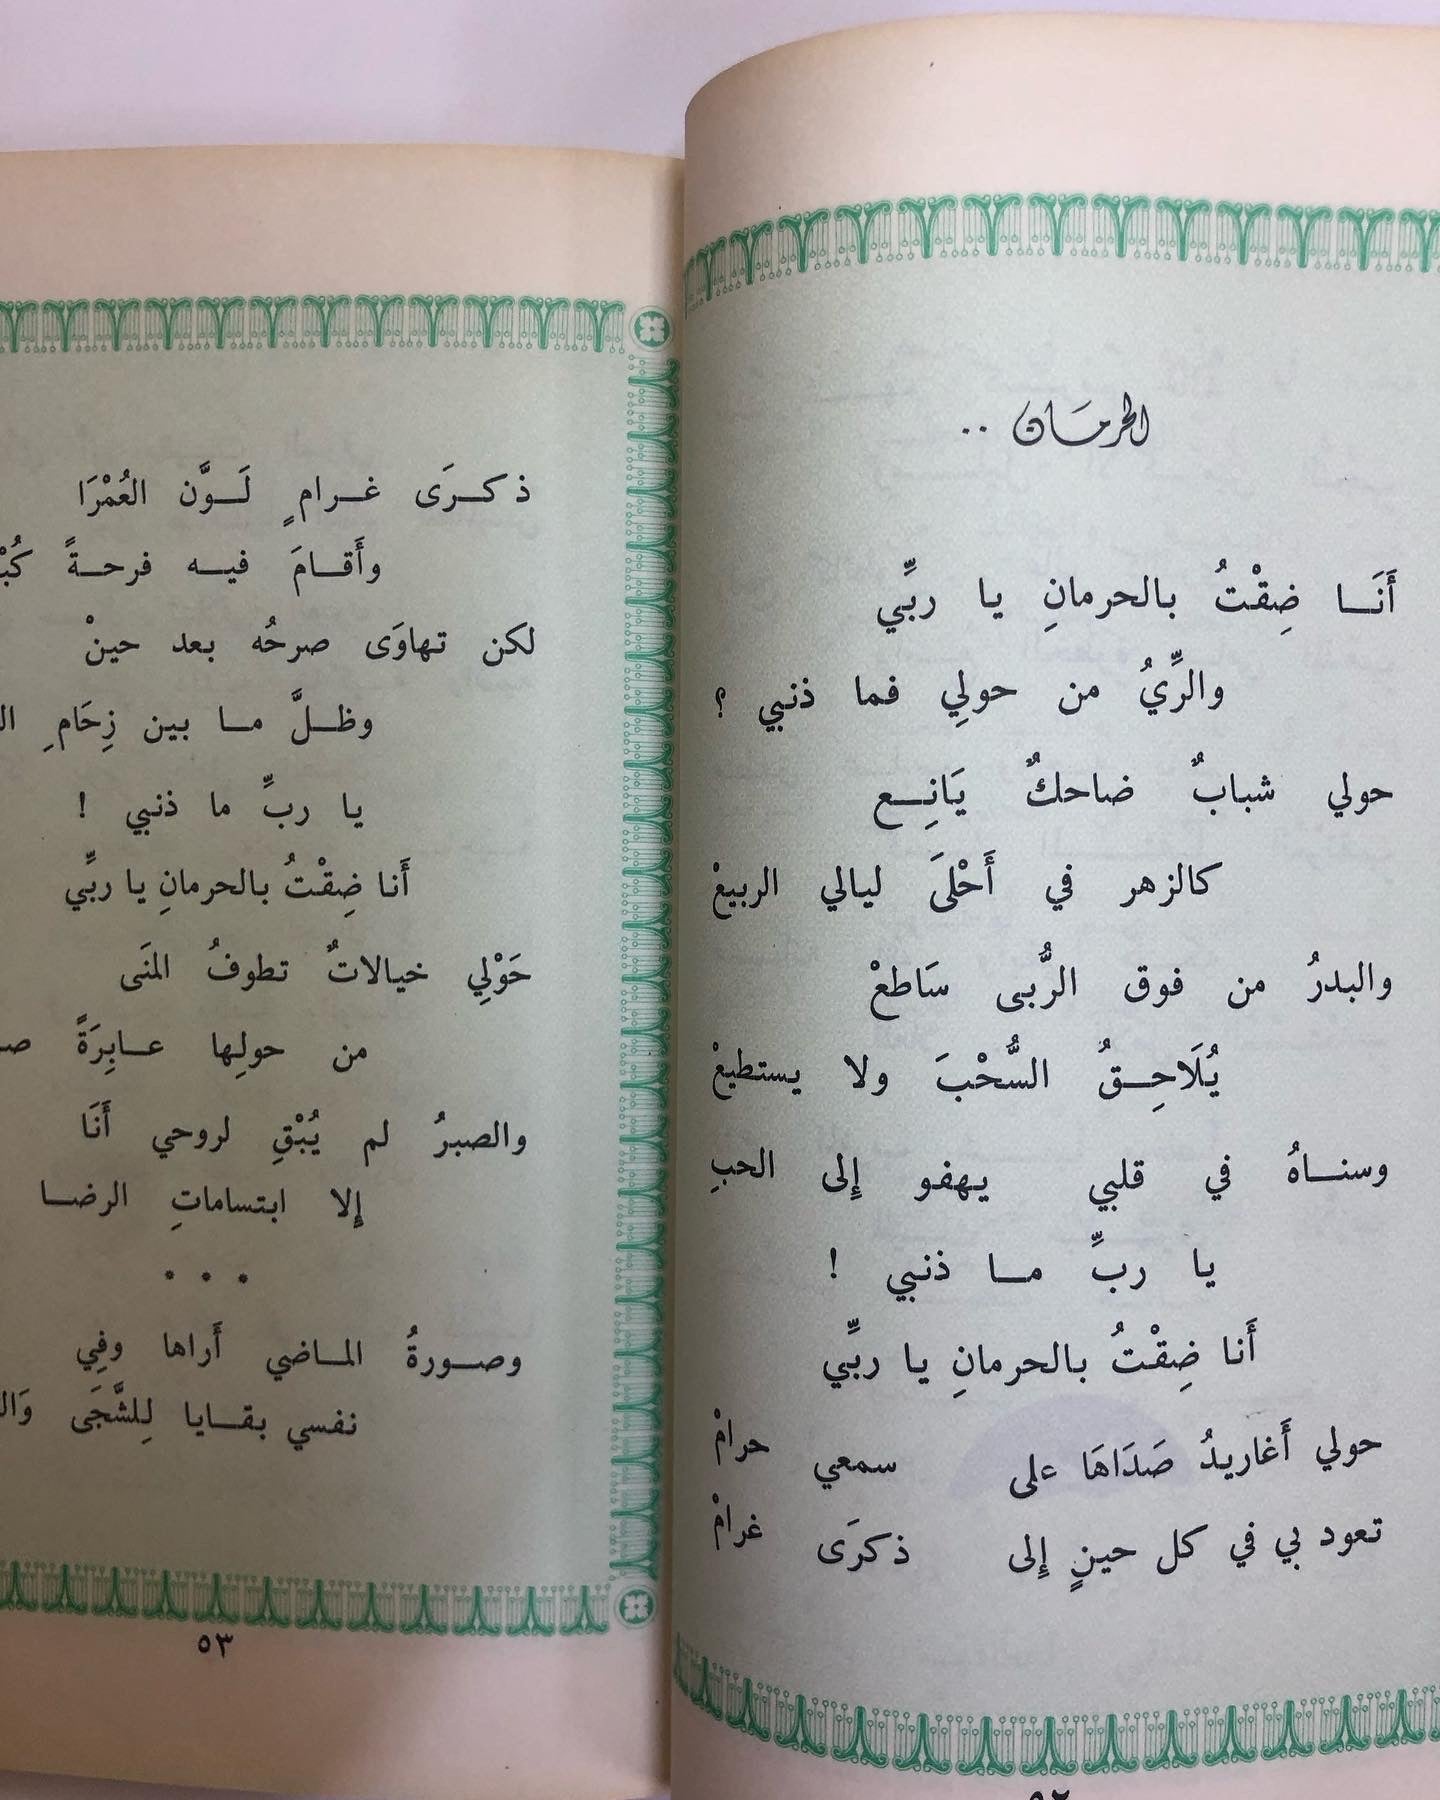 الحرمان ..
أَنَا ضِقْتُ بالحرمانِ يا ربِّي
والرِّيُ من حولِي فما ذنبي ؟
حولي شبابٌ ضاحكٌ يَانِع
كالزهر في أَحْلىَ ليالي الربيعْ
والبدرُ من فوق الرُّبى سَاطعْ
يُلَاحِقُ السُّحْبَ ولا يستطيعْ
وسناهُ في قلبي يهفو إلى الحبِ
يا ربِّ ما ذنبي !
أَنا ضِقْتُ بالحرمانِ يا ربِّي
حولي أَغاريدُ صَدَاهَا على سمعي حرامْ
تعود بي في كل حينٍ إلى ذكرَى غرامْ
ذكرَى غرامٍ لَوَّن العُمْرَا
وأَقامَ فيه فرحةً
لكن تهاوَى صرحُه بعد حينْ
وظلَّ ما بين زِحَامِ
يا ربِّ ما ذنبي !
أَنا ضِقْتُ بالحرمانِ يا ربِّي
حَوْلِي خيالاتٌ تطوفُ المنَى
من حولِها عابِرَةً
والصبرُ لم يُبْقِ لروحي أَنَا
إلا ابتساماتِ الرضا
* * *
وصورةُ الماضي أَراها وفِي
نفسي بقايا لِلشَّجَى
٥٣